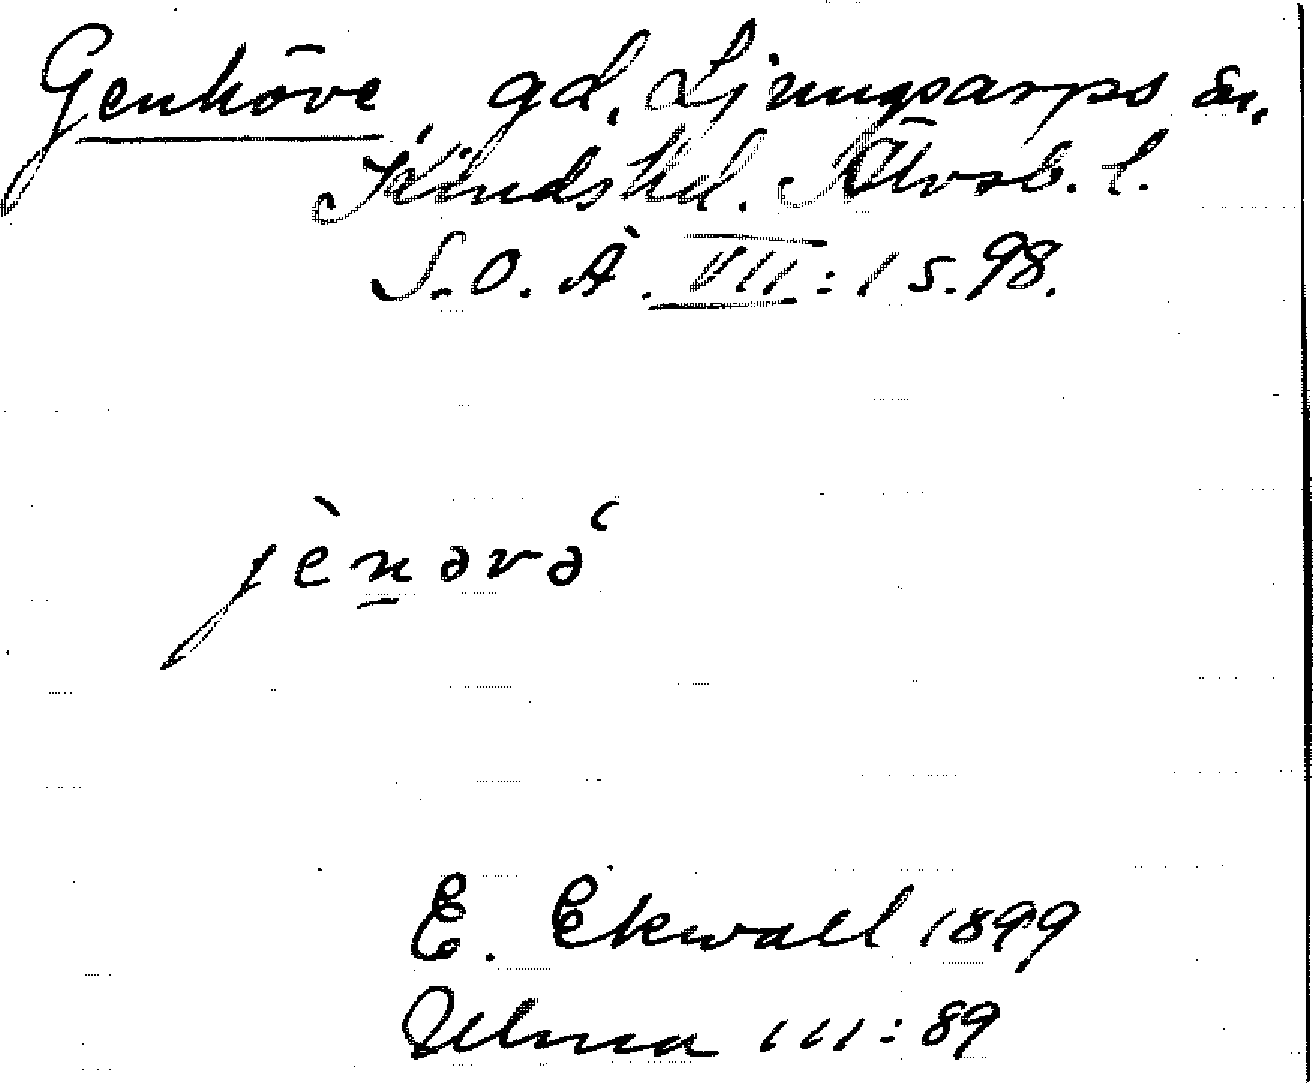 Genhöve, gd. Ljungsarps sn,
Kinds hd. Älvsb. l.
S. O. Ä. VII: 1 s. 98.
jènəvə́
E. Ekwall 1899
Ulma III: 89